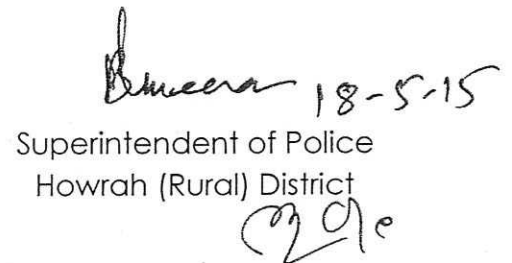 18-5-15
Superintendent of Police
Howrah (Rural) District